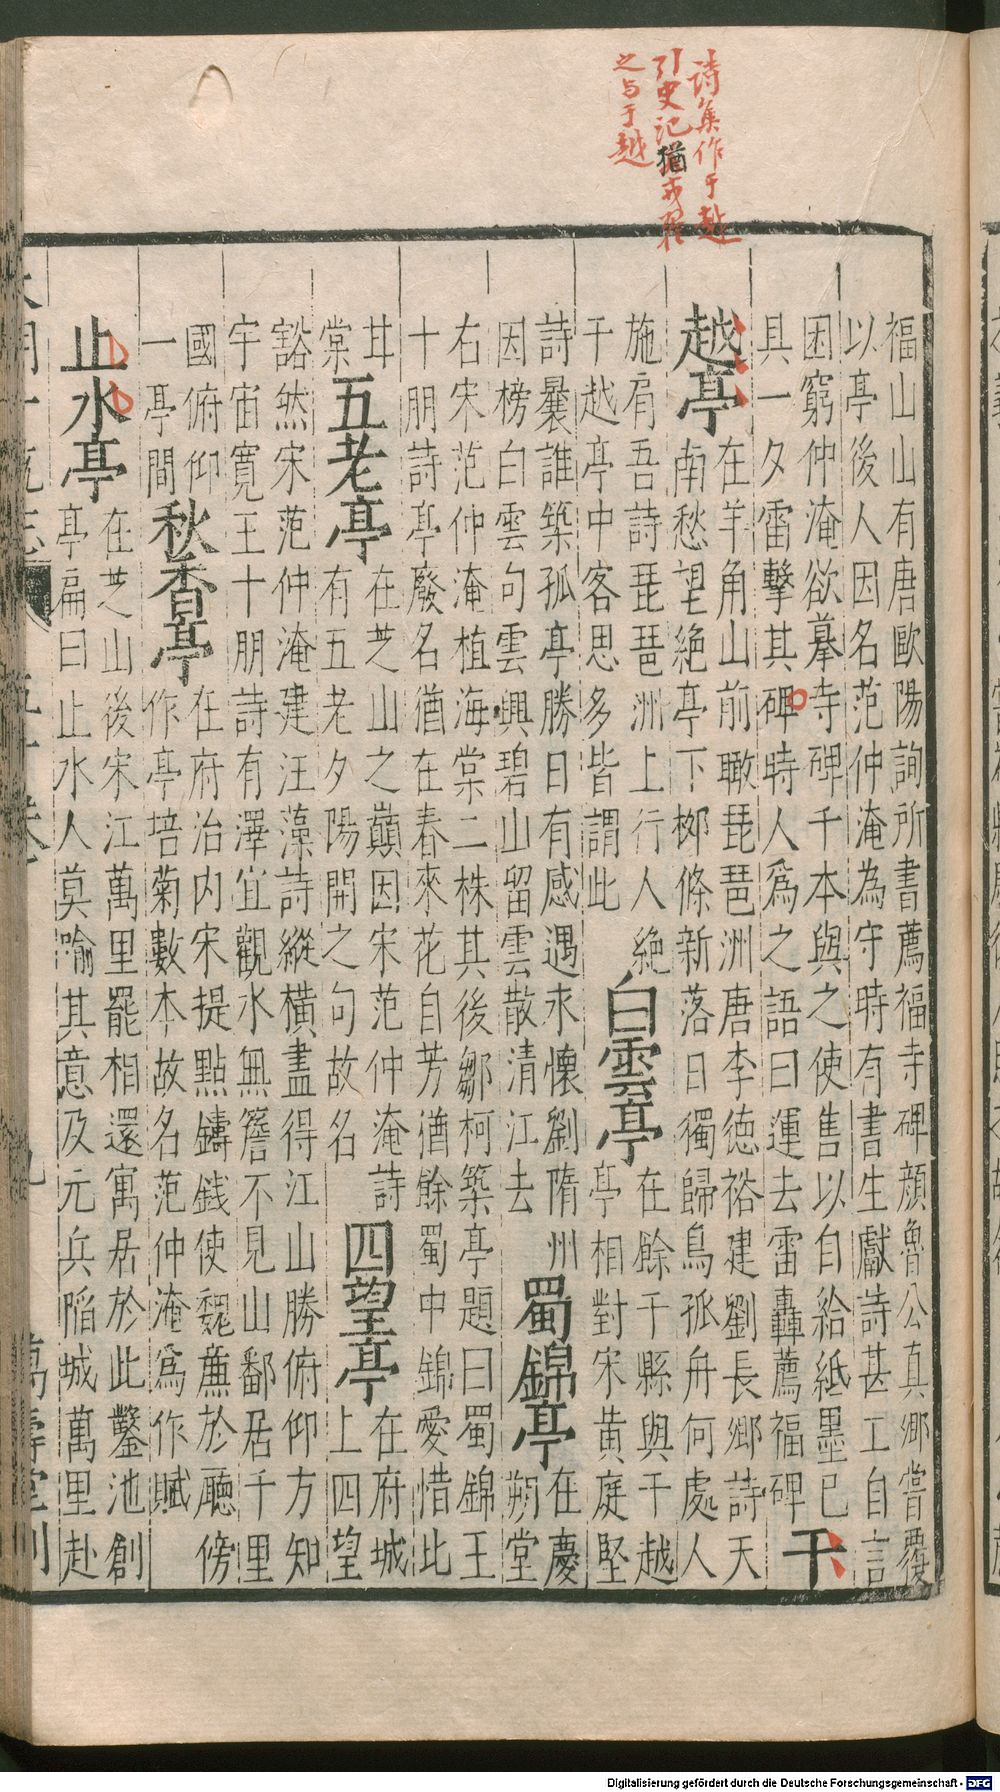 詩集作于越
引史記猶戎翟
之与于越
福山山有唐歐陽詢所書薦福寺碑顔魯公真卿嘗覆
以亭後人因名范仲淹為守時有書生獻詩甚工自言
困窮仲淹欲摹寺碑千本與之使售以自給紙墨已
具一夕雷擊其碑時人爲之語曰運去雷轟薦福碑
干
越亭
在羊角山前瞰琵琶洲唐李徳裕建劉長卿詩天
南愁望絶亭下栁條新落日獨歸鳥孤舟何處人
施肩吾詩琵琶洲上行人絶
干越亭中客思多皆謂此
白雲亭
在餘干縣與干越
亭相對宋黄庭堅
詩曩誰築孤亭勝日有感遇永懷劉隋州
因榜白雲句雲興碧山留雲散清江去
蜀錦亭
在慶
朔堂
右宋范仲淹植海棠二株其後鄒柯築亭題曰蜀錦王
十朋詩亭廢名猶在春來花自芳猶餘蜀中錦愛惜此
甘
棠
五老亭
在芝山之巔因宋范仲淹詩
有五老夕陽開之句故名
四望亭
在府城
上四望
豁然宋范仲淹建汪藻詩縱橫盡得江山勝俯仰方知
宇宙寛王十朋詩有澤宜觀水無簷不見山鄱居千里
國俯仰
一亭間
秋香亭
在府治内宋提點鑄銭使魏蕭於廳傍
作亭培菊數本故名范仲淹爲作賦
止水亭
在芝山後宋江萬里罷相還寓居於此鑿池創
亭扁曰止水人莫喻其意及元兵陷城萬里赴
Digitalisierung gefördert durch die Deutsche Forschungsgemeinschaft - DFG